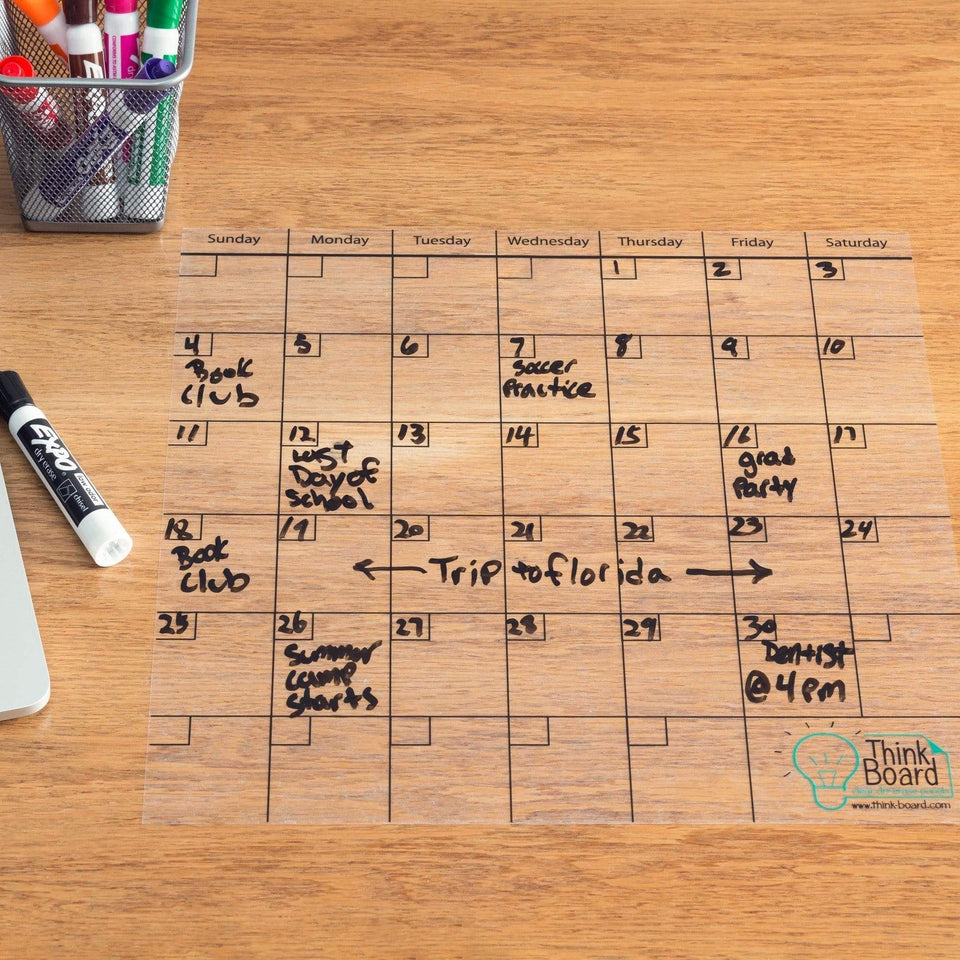 Sunday Monday Tuesday Wednesday Thursday Friday Saturday
1 2 3
4 5 6 7 8 9 10
Book
Club
Soccer
Practice
11 12 13 14 15 16 17
Last
Day of
School
grad
Party
18 19 20 21 22 23 24
Book
Club
Trip to florida
25 26 27 28 29 30
Summer
camp
starts
Dentist
@ 4 pm
EXPO
dry erase
chisel
Think
Board
www.think-board.com